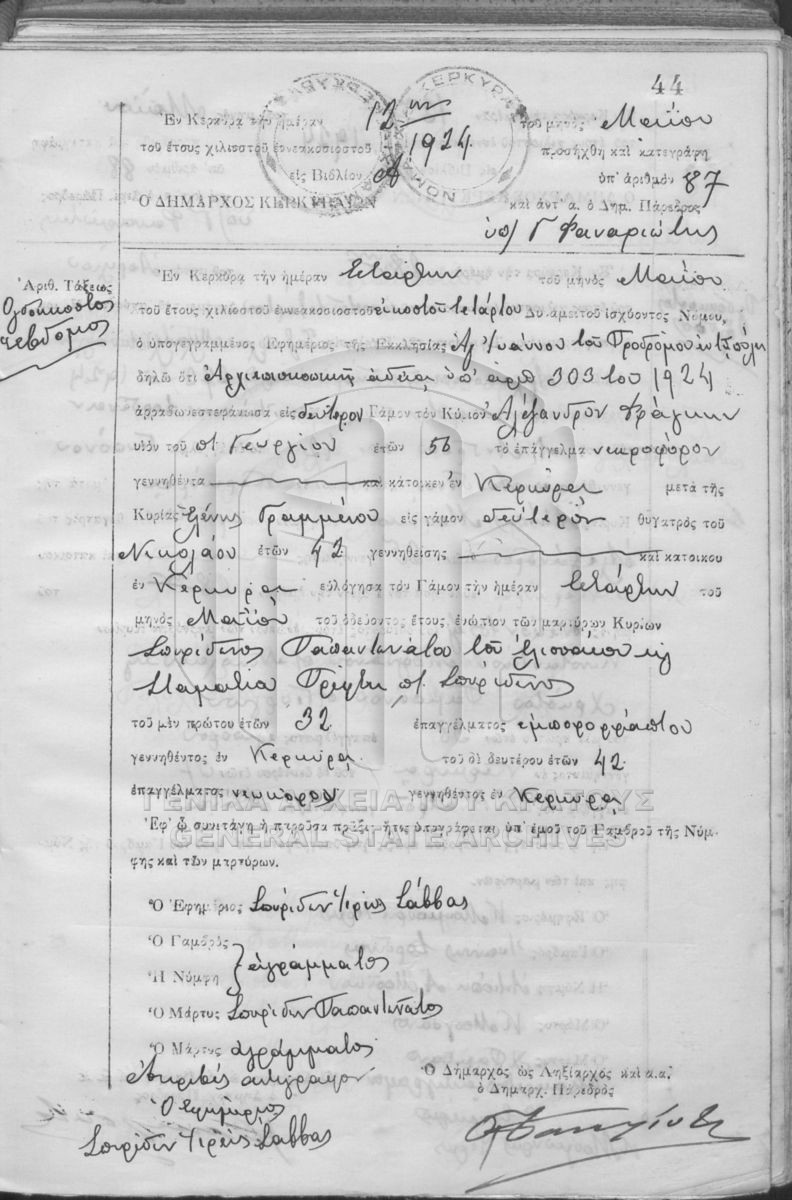 44
Ἐν Κερκύρᾳ τὴν ἡμέραν 12ην τοῦ μηνὸς Μαΐου
τοῦ ἔτους χιλιοστοῦ ἐννεακοσιοστοῦ 1924 προσήχθη καὶ κατεγράφη
εἰς Βιβλίον Α ὑπ' ἀριθμὸν 87
Ὁ ΔΗΜΑΡΧΟΣ ΚΕΡΚΥΡΑΙΩΝ καὶ ἀντ' α. ὁ Δημ. Πάρεδρος
ὑπ/ Γ Φαναριώτης
Ἀριθ. Τάξεως
Ὀγδοηκοστὸς
ἕβδομος
Ἐν Κερκύρᾳ τὴν ἡμέραν τετάρτην τοῦ μηνὸς Μαΐου
τοῦ ἔτους χιλιοστοῦ ἐννεακοσιοστοῦ εἰκοστοῦ τετάρτου Δυνάμει τοῦ ἰσχύοντος Νόμου,
ὁ ὑπογεγραμμένος Ἐφημέριος τῆς Ἐκκλησίας Ἁγ Ἰωάννου τοῦ Προδρόμου ἐν Πόλει
δηλῶ ὅτι Ἀρχιεπισκοπικῇ ἀδείᾳ ὑπ' ἀριθ 303 τοῦ 1924
ἀρραβωνεστεφάνωσα εἰς δεύτερον Γάμον τὸν Κύριον Ἀλέξανδρον Φράγκην
υἱὸν τοῦ π/ Γεωργίου ἐτῶν 56 τὸ ἐπάγγελμα νεκροφόρον
γεννηθέντα καὶ κάτοικον ἐν Κερκύρᾳ μετὰ τῆς
Κυρίας Ἑλένης Γραμμένου εἰς γάμον δεύτερον θυγατρὸς τοῦ
Νικολάου ἐτῶν 42 γεννηθείσης καὶ κατοίκου
ἐν Κερκύρᾳ εὐλόγησα τὸν Γάμον τὴν ἡμέραν τετάρτην τοῦ
μηνὸς Μαΐου τοῦ ὁδεύοντος ἔτους, ἐνώπιον τῶν μαρτύρων Κυρίων
Σπυρίδωνος Παπαντωνάτου τοῦ Ἐλισσαίου κ
Σταματίου π/ Σπυρίδωνος
τοῦ μὲν πρώτου ἐτῶν 32 ἐπαγγέλματος ἐμπορορράπτου
γεννηθέντος ἐν Κερκύρᾳ τοῦ δὲ δευτέρου ἐτῶν 42
ἐπαγγέλματος νεωκόρου γεννηθέντος ἐν Κερκύρᾳ
ΓΕΝΙΚΑ ΑΡΧΕΙΑ ΤΟΥ ΚΡΑΤΟΥΣ
Ἐφ' ᾧ συνετάγη ἡ παροῦσα πρᾶξις ἥτις ὑπογράφεται ὑπ' ἐμοῦ τοῦ Γαμβροῦ τῆς Νύμ-
GENERAL STATE ARCHIVES
φης καὶ τῶν μαρτύρων.
Ὁ Ἐφημέριος Σπυρίδων Ἱερεὺς Σάββας
Ὁ Γαμβρὸς
ἀγράμματος
Ἡ Νύμφη
Ὁ Μάρτυς Σπυρίδων Παπαντωνάτος
Ὁ Μάρτυς ἀγράμματος
Ἀκριβὲς ἀντίγραφον
Ὁ Δήμαρχος ὡς Ληξίαρχος καὶ α.α.
ὁ Δημαρχ. Πάρεδρος
Ὁ Ἐφημέριος
Σπυρίδων Ἱερεὺς Σάββας